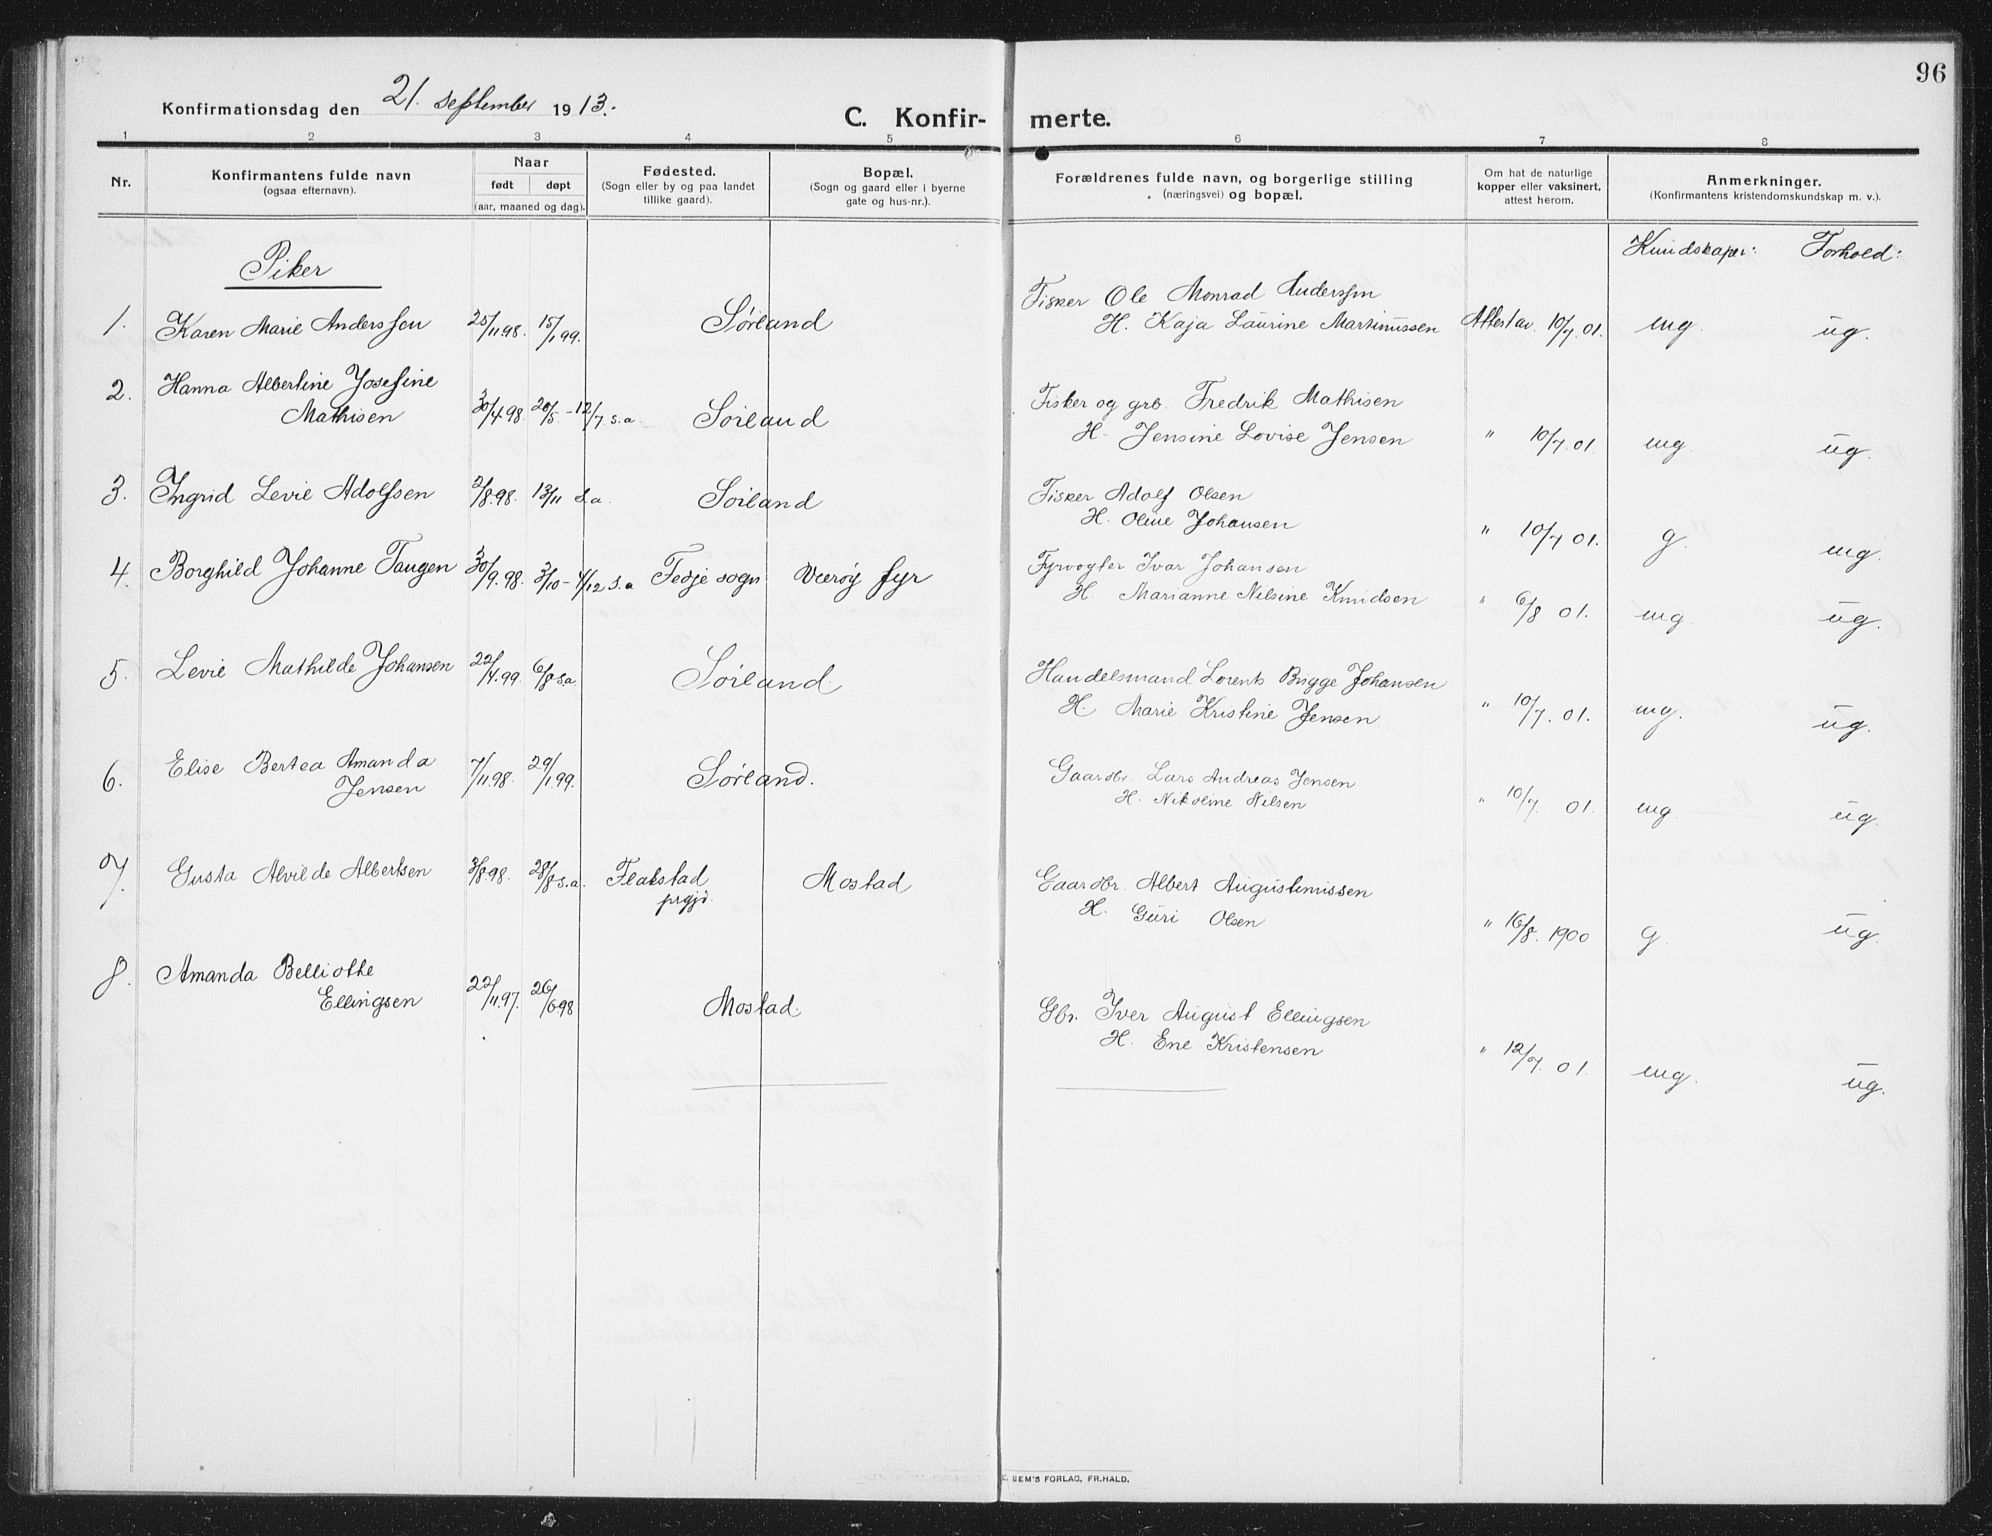 96
Konfirmationsdag den 21. september 1913.
C. Konfir- merte.
1 2 3 4 5 6 7 8
Nr.
Konfirmantens fulde navn
(ogsaa efternavn).
Naar
født døpt
(aar, maaned og dag).
Fødested.
(Sogn eller by og paa landet
tillike gaard).
Bopæl.
(Sogn og gaard eller i byerne
gate og hus-nr.).
Forældrenes fulde navn, og borgerlige stilling
(næringsvei) og bopæl.
Om hat de naturlige
kopper eller vaksinert,
attest herom.
Anmerkninger.
(Konfirmantens kristendomskundskap m. v.).
Kundskaper: Forhold:
Piker
1. Karen Marie Anderssen 25/11.98 15/1 99. Sørland
Fisker Ole Monrad Anderssen
H. Kaja Laurine Martinussen Attest av. 10/7.01. mg. ug.
2. Hanna Albertine Josefine
Mathisen 30/4.98. 20/5-12/7 s.a. Sørland
Fisker og grb. Fredrik Mathisen
H. Jensine Lovise Jensen " 10/7.01. mg. ug.
3. Ingrid Levie Adolfsen 2/8.98. 13/11 s.a. Sørland
Fisker Adolf Olsen
H. Oline Johansen " 10/7 01. g. mg.
4. Borghild Johanne Tangen 30/9.98. 3/10-4/12 s.a Fedje sogn Værøy fyr
Fyrvogter Ivar Johansen
H. Marianne Nilsine Knudsen " 6/8 01. mg. ug.
5. Levie Mathilde Johansen 22/4.99. 6/8 s.a. Sørland.
Handelsmand Lorents Brigge Johansen
H. Marie Kristine Jensen " 10/7.01. mg. ug.
6. Elise Bertea Amanda
Jensen 7/11.98. 29/1.99. Sørland.
Gaardbr. Lars Andreas Jensen
H. Nikoline Nilsen " 10/7 01. mg. ug.
7. Gusta Alvilde Albertsen 3/8.98. 28/8 s.a. Flakstad
prgjd. Mostad
Gaardbr. Albert Augustinussen
H. Guri Olsen " 16/8.1900 g. ug.
8. Amanda Belliothe
Ellingsen 22/11.97. 26/6 98 Mostad.
Gbr. Iver August Ellingsen
H. Ene Kristensen " 12/7. 01. mg. ug.
E. SEM'S FORLAG, FR.HALD.